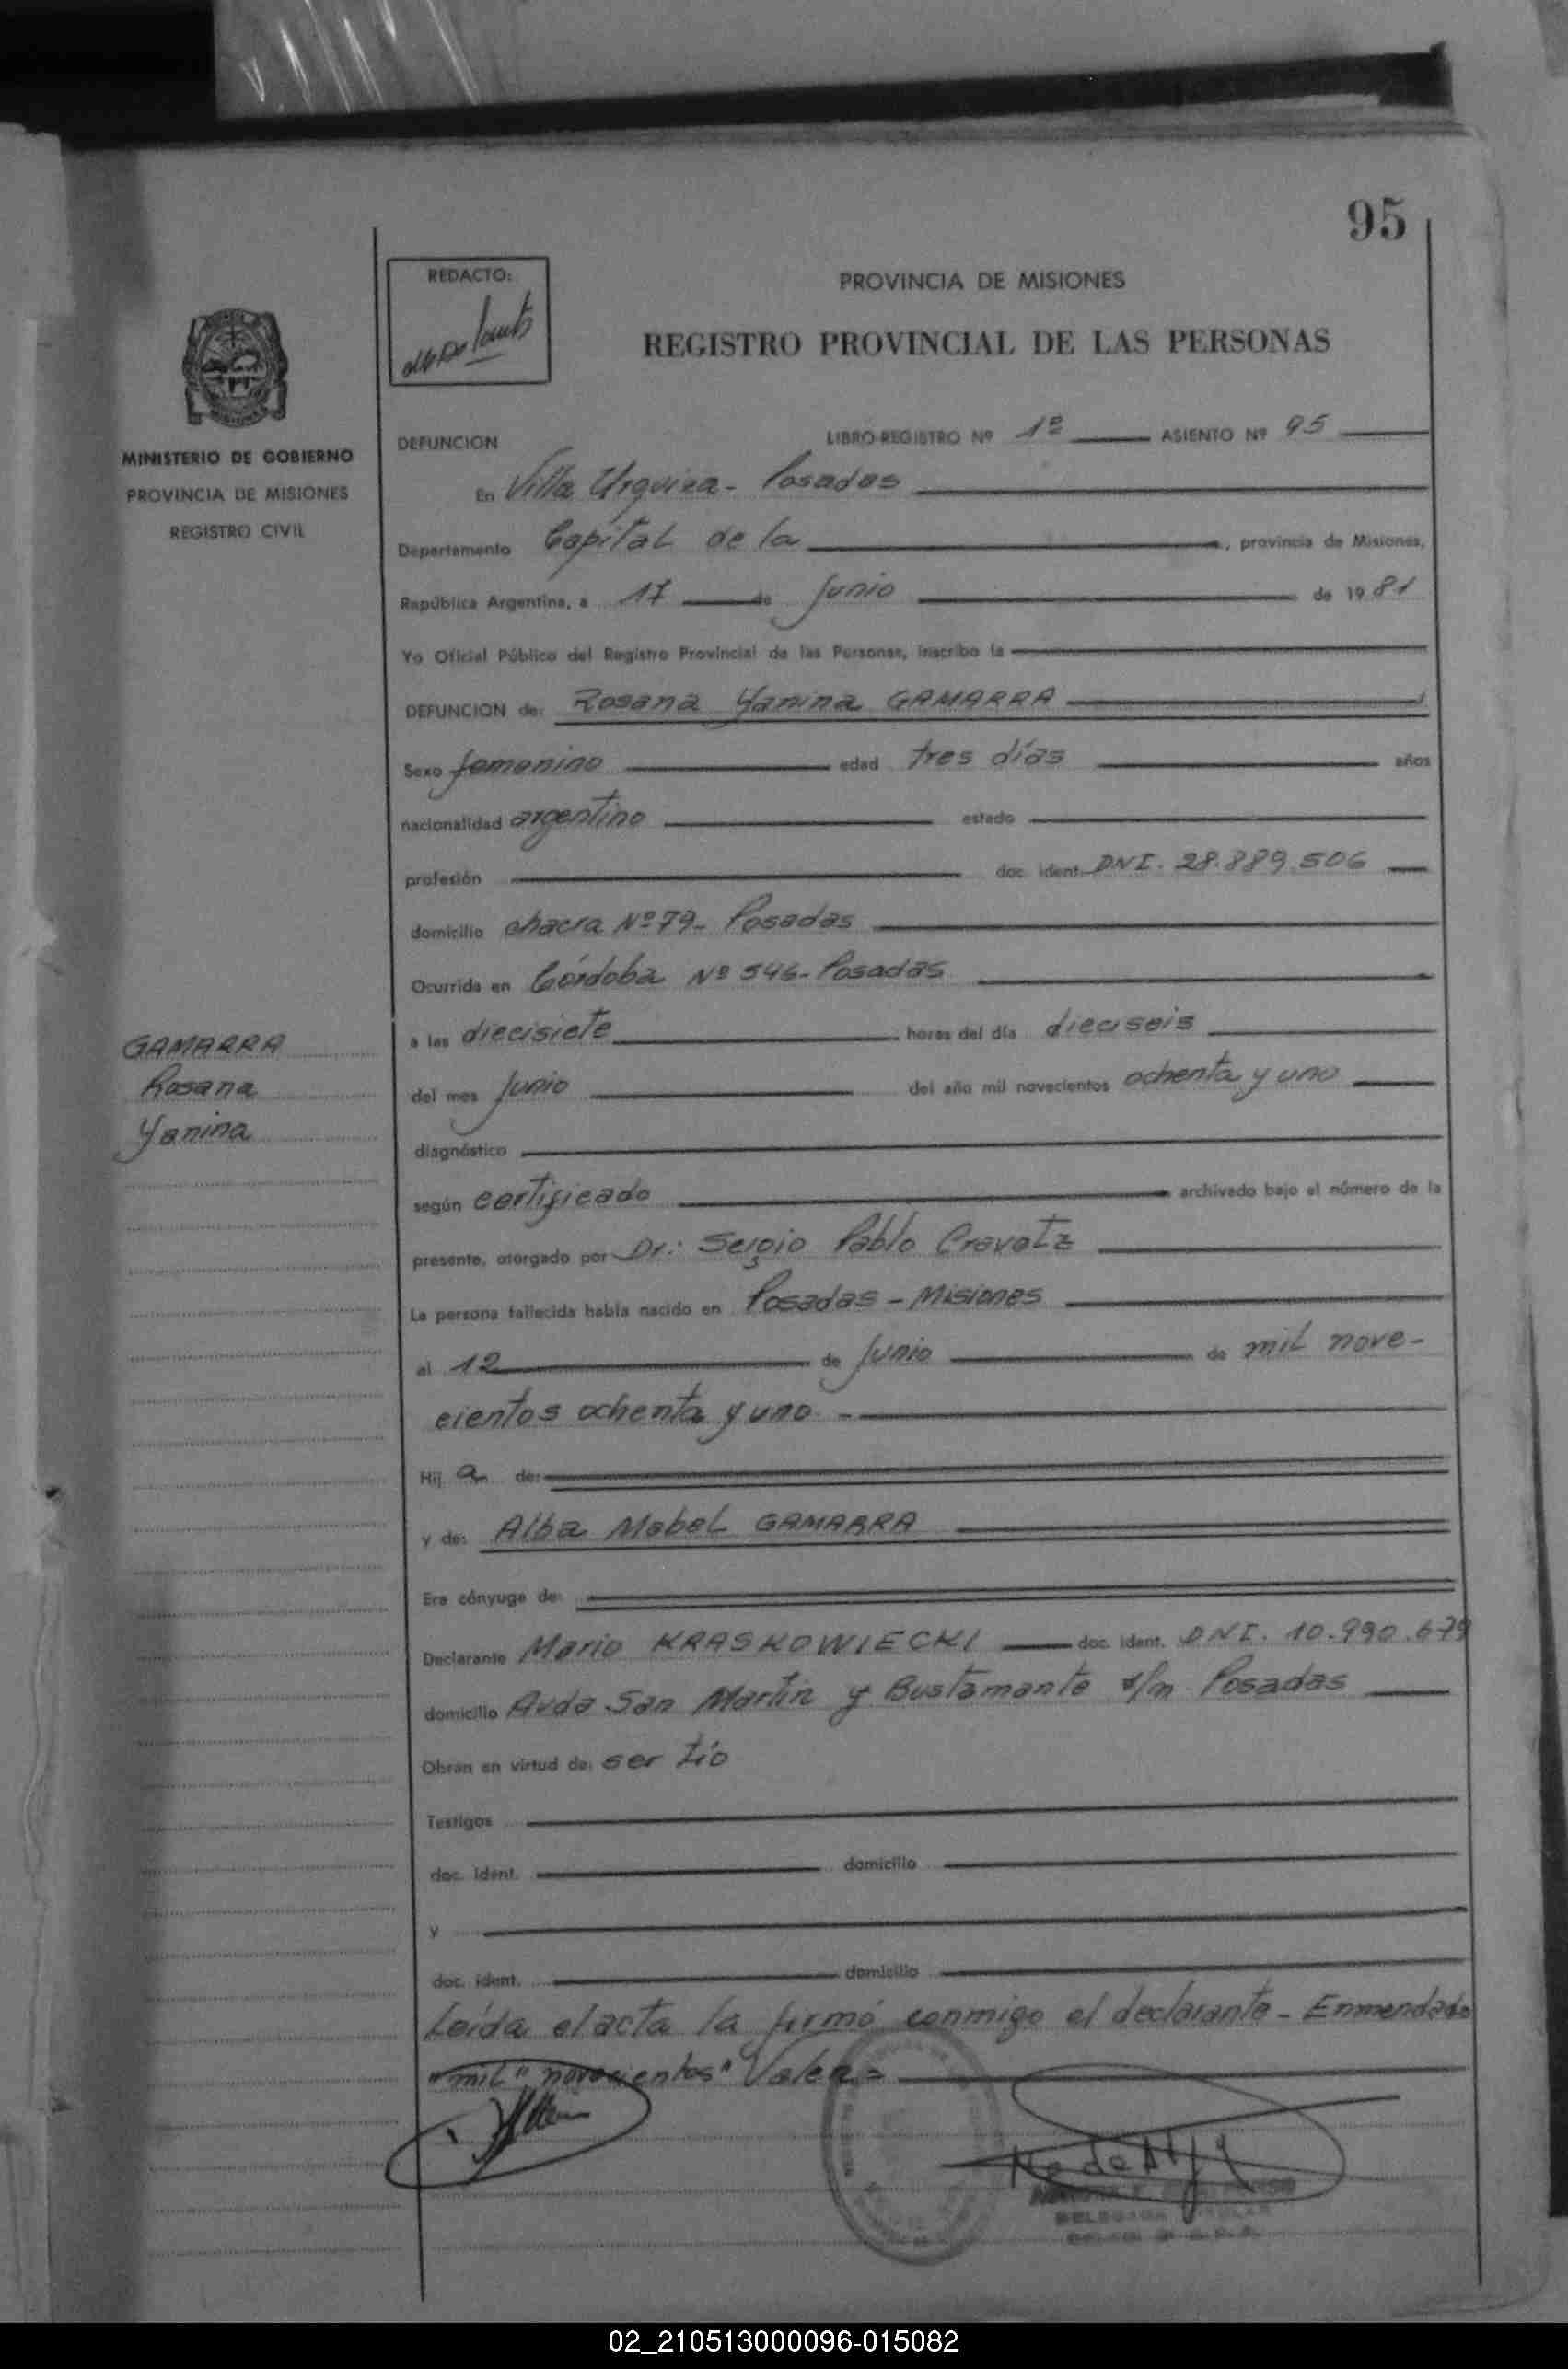 95
REDACTO:
PROVINCIA DE MISIONES
REGISTRO PROVINCIAL DE LAS PERSONAS
MINISTERIO DE GOBIERNO
PROVINCIA DE MISIONES
REGISTRO CIVIL
DEFUNCION LIBRO-REGISTRO Nº 1º ASIENTO Nº 95
En Villa Urquiza - Posadas
Departamento Capital de la, provincia de Misiones,
República Argentina, a 17 de Junio de 1981
Yo Oficial Público del Registro Provincial de las Personas, inscribo la
DEFUNCION de: Rosana Yanina GAMARRA
Sexo femenino edad tres días años
nacionalidad argentino estado
profesión doc. ident. DNI. 28.889.506
domicilio chacra Nº 79- Posadas
Ocurrida en Córdoba Nº 546- Posadas
GAMARRA
Rosana
Yanina
a las diecisiete horas del día dieciseis
del mes Junio del año mil novecientos ochenta y uno
diagnóstico
según certificado archivado bajo el número de la
presente, otorgado por Dr: Sergio Pablo Cravotz
La persona fallecida había nacido en Posadas - Misiones
el 12 de Junio de mil nove-
cientos ochenta y uno -
Hij a de:
y de: Alba Mabel GAMARRA
Era cónyuge de:
Declarante Mario KRASKOWIECKI doc. ident. DNI. 10.990.679
domicilio Avda San Martín y Bustamante s/n Posadas
Obran en virtud de: ser tío
Testigos
doc. ident. domicilio
y
doc. ident. domicilio
Leída el acta la firmó conmigo el declarante - Enmendado
"mil" novecientos" Vale =
02_210513000096-015082